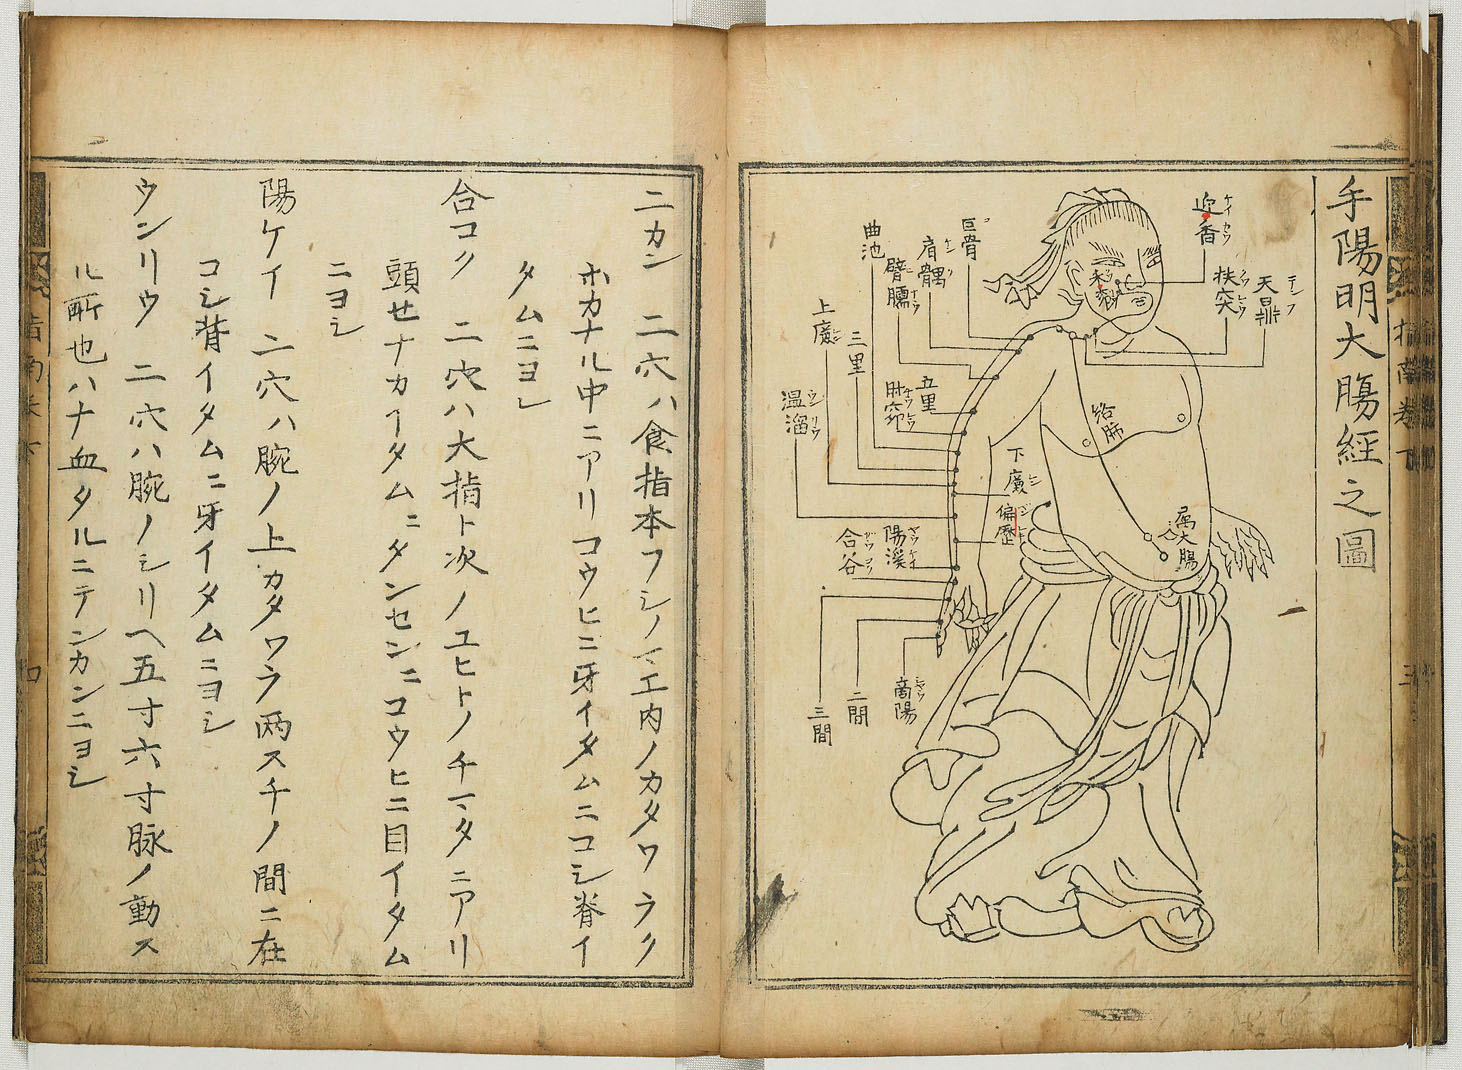 手陽明大腸經之圖
迎香
禾髎
天鼎
扶突
巨骨
肩髃
臂臑
曲池
五里
肘窌
三里
上廉
温溜
下廉
偏歷
陽溪
合谷
商陽
二間
三間
絡肺
属大腸
二カン 二穴ハ食指本フシノマエ内ノカタワラク
ホカナル中ニアリコウヒニ牙イタムニコシ脊イ
タムニヨシ
合コク 二穴ハ大指ト次ノユヒトノチマタニアリ
頭せナカイタムニタンセンニコウヒニ目イタム
ニヨシ
陽ケイ 二穴ハ腕ノ上カタワラ两スチノ間ニ在
コシ背イタムニ牙イタムニヨシ
ウンリウ 二穴ハ腕ノシリヘ五寸六寸脉ノ動ス
ル所也ハナ血タルニテンカンニヨシ